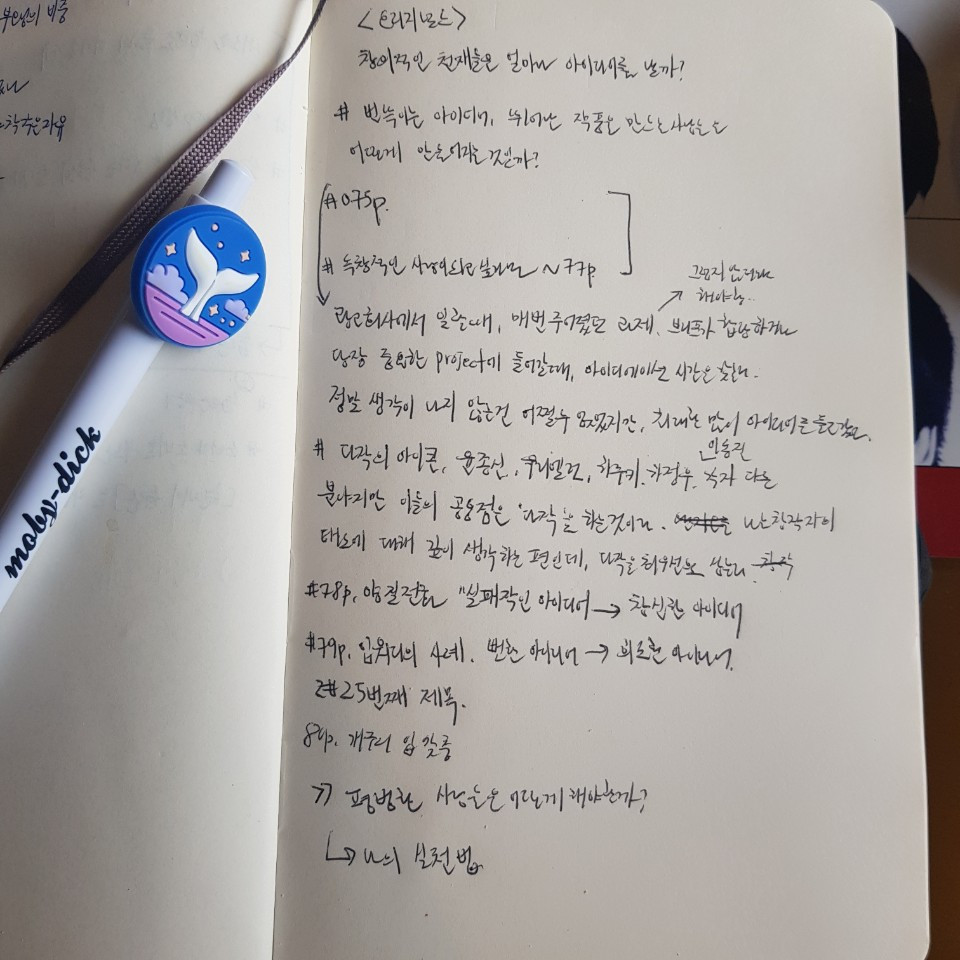 부모님의 비중
착각은 자유
moby-dick
<오리지널스>
창의적인 천재들은 얼마나 아이디어를 낼까?
# 번뜩이는 아이디어, 뛰어난 작품을 만드는 사람들은
어떻게 만들어지는 것일까?
#075p.
# 독창적인 사람이 되고 싶다면 ~77p
그렇지 않더라도
해야함..
광고회사에서 일할때, 매번 주어졌던 과제, 브리프가 합당하거나
당장 중요한 project에 들어갈때, 아이디에이션 시간은
정말 생각이 나지 않는건 어쩔수 없었지만, 최대한 많이 아이디어를 들고갔고,
이동진
# 다작의 아이콘, 윤종신, 우디앨런, 하루키, 하정우, 각자 다른
분야지만 이들의 공통점은 '다작'을 하는것이다. 나는 창작자의
태도에 대해 깊이 생각하는 편인데, 다작을 최우선으로 삼는다
#78p. 양질전화 "실패작인 아이디어 → 참신한 아이디어
#79p. 업워디의 사례. 뻔한 아이디어 → 아이디어.
#25번째 제목.
개구리 입맞춤
>> 평범한 사람들은 어떻게 해야할까?
↳ 나의 실천법